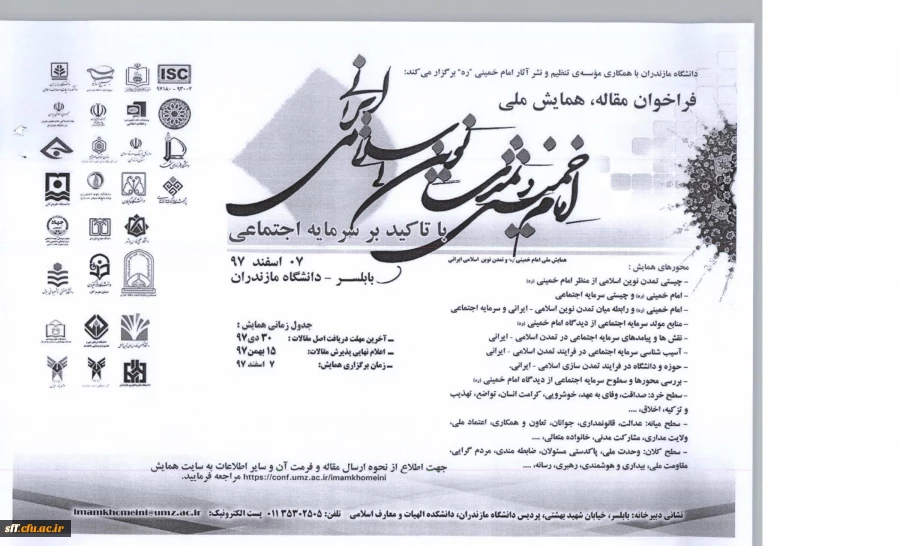 دانشگاه مازندران با همکاری مؤسسه‌ی تنظیم و نشر آثار امام خمینی "ره" برگزار می‌کند:
فراخوان مقاله، همایش ملی
امام خمینی و تمدن نوین اسلامی ایرانی
با تاکید بر سرمایه اجتماعی
همایش ملی امام خمینی (ره) و تمدن نوین اسلامی ایرانی
۰۷ اسفند ۹۷
بابلسر - دانشگاه مازندران
محورهای همایش :
- چیستی تمدن نوین اسلامی از منظر امام خمینی (ره)
- امام خمینی (ره) و چیستی سرمایه اجتماعی
- امام خمینی (ره) و رابطه میان تمدن نوین اسلامی - ایرانی و سرمایه اجتماعی
- منابع مولد سرمایه اجتماعی از دیدگاه امام خمینی (ره)
- نقش ها و پیامدهای سرمایه اجتماعی در تمدن اسلامی - ایرانی
- آسیب شناسی سرمایه اجتماعی در فرایند تمدن اسلامی - ایرانی
- حوزه و دانشگاه در فرایند تمدن سازی اسلامی - ایرانی.
- بررسی محورها و سطوح سرمایه اجتماعی از دیدگاه امام خمینی (ره)
- سطح خرد: صداقت، وفای به عهد، خوشرویی، کرامت انسان، تواضع، تهذیب
و تزکیه، اخلاق، ....
- سطح میانه: عدالت، قانونمداری، جوانان، تعاون و همکاری، اعتماد ملی،
ولایت مداری، مشارکت مدنی، خانواده متعالی، ....
- سطح کلان: وحدت ملی، پاکدستی مسئولان، ضابطه مندی، مردم گرایی،
مقاومت ملی، بیداری و هوشمندی، رهبری، رسانه، ....
جدول زمانی همایش :
- آخرین مهلت دریافت اصل مقالات : ۳۰ دی ۹۷
- اعلام نهایی پذیرش مقالات: ۱۵ بهمن ۹۷
- زمان برگزاری همایش: ۷ اسفند ۹۷
ISC
۹۷۱۸۰ - ۹۳۰۰۲
جهت اطلاع از نحوه ارسال مقاله و فرمت آن و سایر اطلاعات به سایت همایش
https://conf.umz.ac.ir/imamkhomeini مراجعه فرمایید.
نشانی دبیرخانه: بابلسر، خیابان شهید بهشتی، پردیس دانشگاه مازندران، دانشکده الهیات و معارف اسلامی تلفن: ۰۱۱۳۵۳۰۲۵۰۵ پست الکترونیک: imamkhomeini@umz.ac.ir
slf.cfu.ac.ir